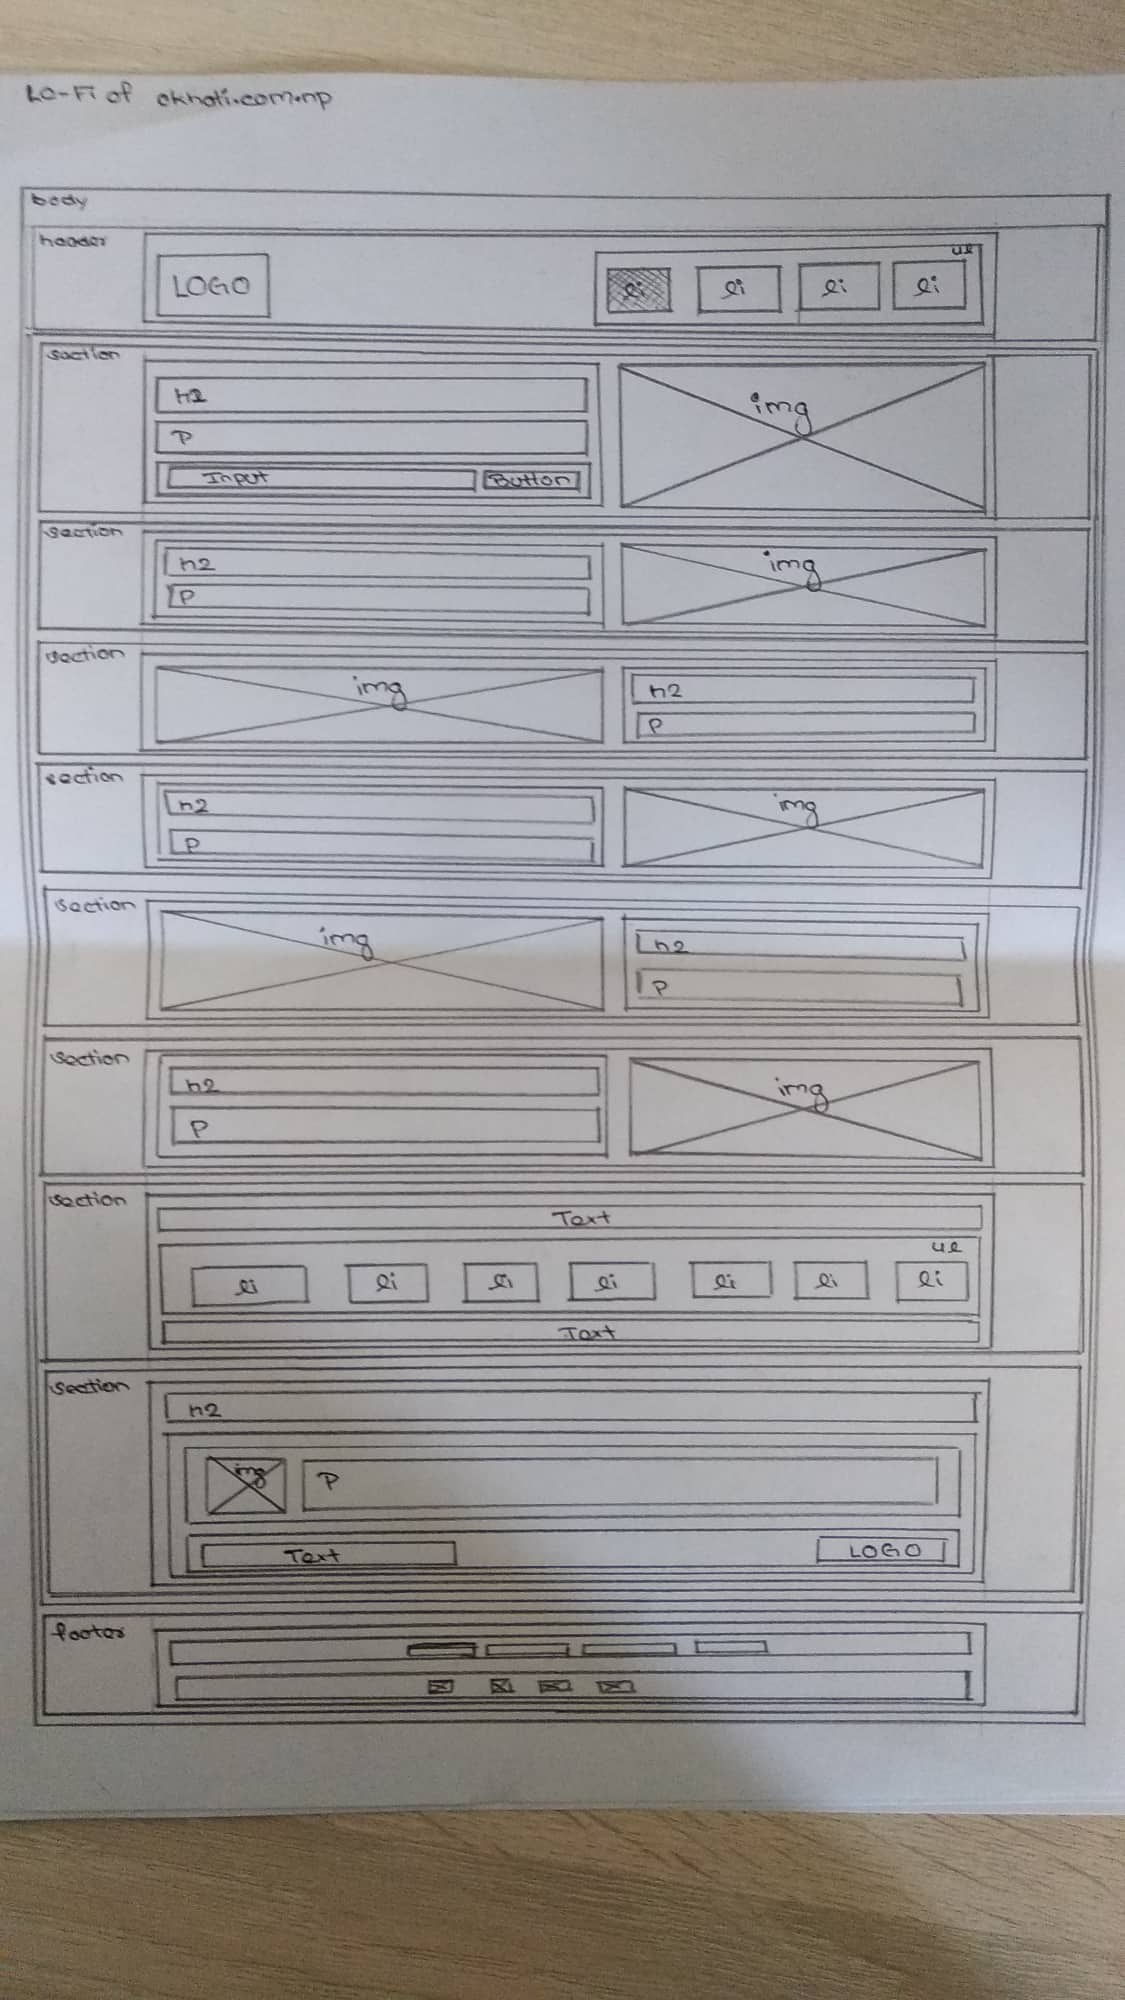 Lo-Fi of okhati.com.np
body
header
LOGO
ul
li li li li
section
h2
P
Input Button
img
section
h2
P
img
section
img
h2
P
section
h2
P
img
section
img
h2
P
section
h2
P
img
section
Text
ul
li li li li li li li
Text
section
h2
img P
Text LOGO
footer